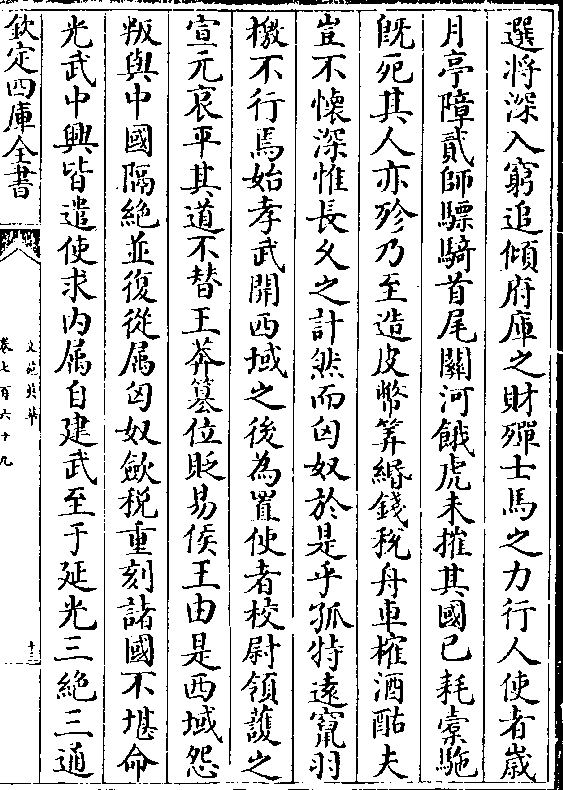 選將深入窮追傾府庫之財殫士馬之力行人使者歳
月亭障貳師驃騎首尾關河餓虎未摧其國已耗橐駞
既死其人亦殄乃至造皮幣筭緡錢税舟車榷酒酤夫
豈不懐深惟長乆之計然而匈奴於是乎孤特逺竄羽
檄不行焉始孝武開西域之後為置使者校尉領護之
宣元哀平其道不替王莽簒位貶易侯王由是西域怨
叛與中國隔絶並復從屬匈奴歛税重刻諸國不堪命
光武中興皆遣使求内屬自建武至于延光三絶三通
欽定四庫全書
文苑英華
卷七百六十九
十三